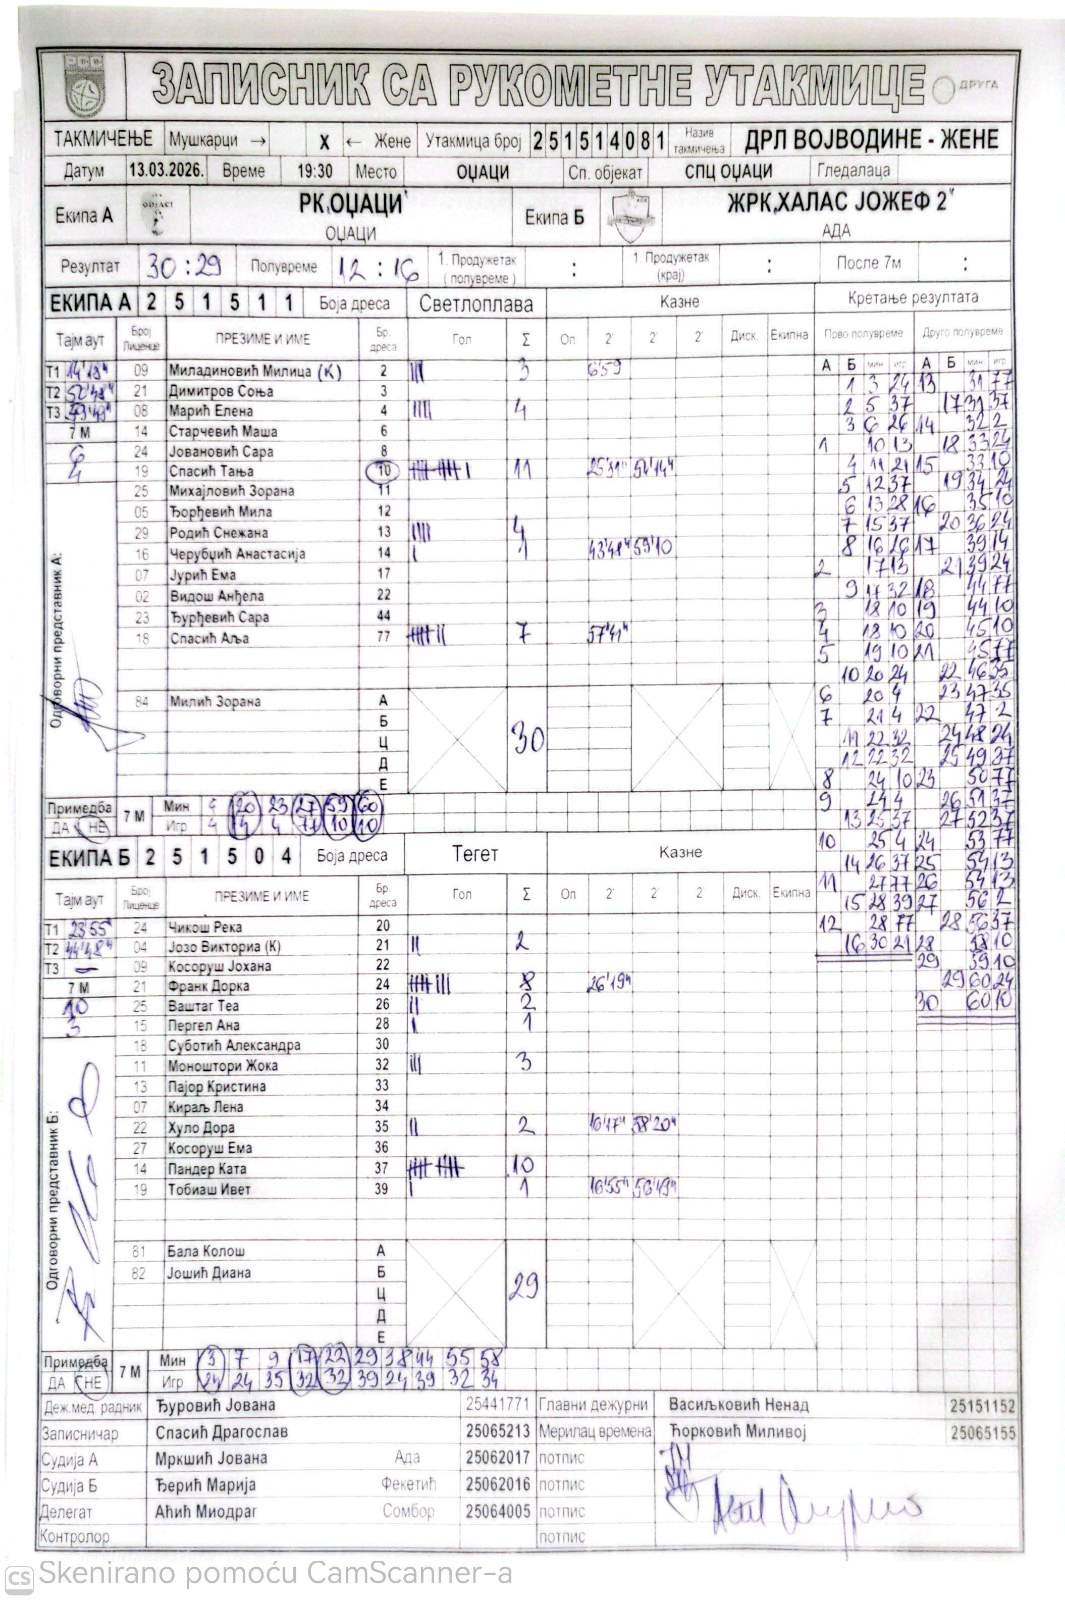 ЗАПИСНИК СА РУКОМЕТНЕ УТАКМИЦЕ ДРУГА
ТАКМИЧЕЊЕ Мушкарци → X ← Жене Утакмица број 2 5 1 5 1 4 0 8 1 Назив такмичења ДРЛ ВОЈВОДИНЕ - ЖЕНЕ
Датум 13.03.2026. Време 19:30 Место ОЏАЦИ Сп. објекат СПЦ ОЏАЦИ Гледалаца
Екипа А РК„ОЏАЦИ" Екипа Б ЖРК„ХАЛАС ЈОЖЕФ 2"
ОЏАЦИ АДА
Резултат 30 : 29 Полувреме 12 : 16 1. Продужетак (полувреме) : 1 Продужетак (крај) : После 7м :
ЕКИПА А 2 5 1 5 1 1 Боја дреса Светлоплава Казне Кретање резултата
Тајм аут Број Лиценце ПРЕЗИМЕ И ИМЕ Бр. дреса Гол Σ Оп 2' 2' 2' Диск. Екипна Прво полувреме Друго полувреме
А Б мин игр А Б мин игр
Т1 14'19" 09 Миладиновић Милица (К) 2 3 6'59
Т2 52'48" 21 Димитров Соња 3
Т3 08 Марић Елена 4 4
7 М 14 Старчевић Маша 6
6 24 Јовановић Сара 8
4 19 Спасић Тања 10 11 25'31" 54'14"
25 Михајловић Зорана 11
05 Ђорђевић Мила 12
29 Родић Снежана 13 4
16 Черубџић Анастасија 14 1 43'48" 59'10
07 Јурић Ема 17
02 Видош Анђела 22
23 Ђурђевић Сара 44
18 Спасић Аља 77 7 57'41"
Одговорни представник А:
84 Милић Зорана А
Б
Ц 30
Д
Е
Примедба ДА НЕ 7 М Мин 4 20 23 27 59 60
Игр 4 4 4 77 10 10
1 3 24 13 31 77
2 5 37 17 31 37
3 6 26 14 32 2
1 10 13 18 33 24
4 11 21 15 33 10
5 12 37 19 34 24
6 13 28 16 35 10
7 15 37 20 36 24
8 16 26 17 39 14
2 17 13 21 39 24
9 17 32 18 44 77
3 18 10 19 44 10
4 18 10 20 45 10
5 19 10 21 45 77
10 20 24 22 46 35
6 20 4 23 47 35
7 21 4 22 47 2
11 22 32 24 48 24
12 22 32 25 49 37
8 24 10 23 50 77
9 24 4 26 51 37
13 25 37 27 52 37
10 25 4 24 53 77
14 26 37 25 54 13
11 27 77 26 54 13
15 28 39 27 56 2
12 28 77 28 56 37
16 30 21 28 58 10
29 59 10
29 60 24
30 60 10
ЕКИПА Б 2 5 1 5 0 4 Боја дреса Тегет Казне
Тајм аут Број Лиценце ПРЕЗИМЕ И ИМЕ Бр. дреса Гол Σ Оп 2' 2' 2 Диск. Екипна
Т1 23'55" 24 Чикош Река 20
Т2 44'48" 04 Јозо Викториа (К) 21 2
Т3 — 09 Косоруш Јохана 22
7 М 21 Франк Дорка 24 8 26'19"
10 25 Ваштаг Теа 26 2
3 15 Пергел Ана 28 1
18 Суботић Александра 30
11 Моноштори Жока 32 3
13 Пајор Кристина 33
07 Кираљ Лена 34
22 Хуло Дора 35 2 16'47" 58'20"
27 Косоруш Ема 36
14 Пандер Ката 37 10
19 Тобиаш Ивет 39 1 16'55" 56'49"
Одговорни представник Б:
81 Бала Колош А
82 Јошић Диана Б
Ц 29
Д
Е
Примедба ДА НЕ 7 М Мин 3 7 9 17 22 29 38 44 55 58
Игр 24 24 35 32 32 39 24 39 32 34
Деж.мед. радник Ђуровић Јована 25441771 Главни дежурни Васиљковић Ненад 25151152
Записничар Спасић Драгослав 25065213 Мерилац времена Ћорковић Миливој 25065155
Судија А Мркшић Јована Ада 25062017 потпис
Судија Б Ђерић Марија Фекетић 25062016 потпис
Делегат Аћић Миодраг Сомбор 25064005 потпис
Контролор потпис
CS Skenirano pomoću CamScanner-a